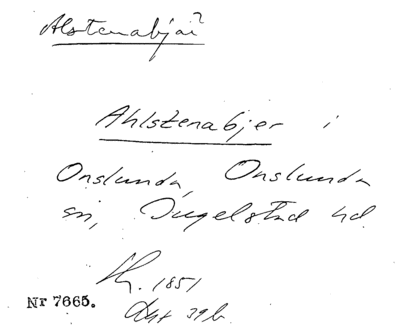 Alstenabjär?
Ahlstenabjer i
Onslunda, Onslunda
sn, Ingelstad hd.
1851
Nr 7665.